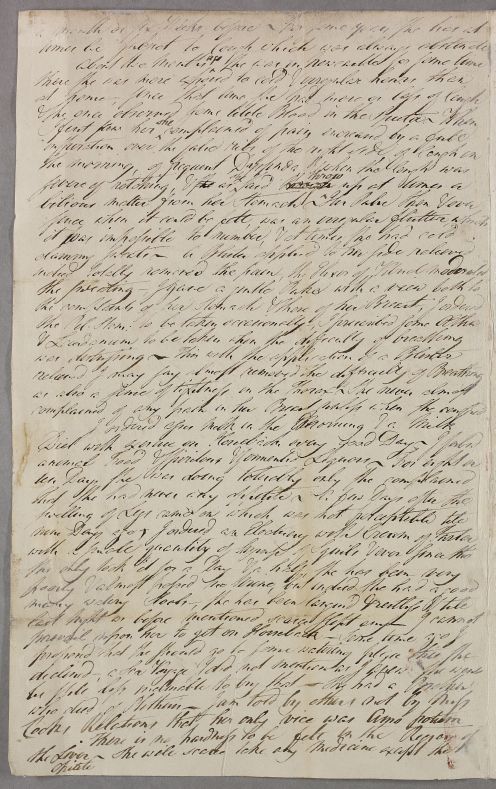 a month or six weeks before – For some years she has at
times been subject to Cough which was always attended
about two months ago she was in new for some time
there she was more exposed to cold & irregular hours than
at home – since that time she had more or less of Cough
& she once observed some little Blood in the Sputa – When
I first saw her she complained of pain increased by a full
inspiration over the false ribs of the right side, of Cough in
the morning, of frequent Dyspnoea & when the Cough was
severe of retching, & as she said threw up at times a
bilious matter from her Stomach – Her Pulse then & ever
since when it could be felt, was an irregular flutter which
it was impossible to number, & at times she had cold
clammy sweats – a Blister applied to the side relieved
indeed totally removed the pain,
the sweating – I gave a gentle Puke with a view both to
the complaints of her Stomach & those of her Breast. I ordered
to be taken occasionally & prescribed some Ether
& Laudanum, to be taken when the difficulty of breathing
was distressing – This with the application of a Blister
relieved I may say almost removed the difficulty of Breathing
as also a sense of tightness in the Thorax – She never almost
complained of any pain in her Breast unless when she coughed
I ordered Asses milk in the Morning & a Milk
Diet with exercise on Horseback every good Day – I forbid
animal Food & Spiritous & fermented Liquors – For eight or
ten Days she was doing tolerably only she complained
that she had never any appetite – A few Days after the
swelling of Legs came on which was not perceptible till
nine Days ago, I ordered an Electuary with Cream of Tartar
with a small quantity of & ever since then
she only took it for a Day & a half, she has been very
poorly & almost passed no Urine, tho' indeed she had a good
many watery Stools, she has been languid & restless & till
last night as before mentioned scarce slept any – I cannot
prevail upon her to get on Horseback – Some time ago I
proposed that she should go to some watering place, this she
declined, a Sea Voyage I did not mention as I knew she would
be still less inclinable to try that – She had a
who died of Phthisis – I am told by others not by Miss
Cooks Relations that her only vice was
– There is no hardness to be felt in the Region of
the Liver – She will scarce take any Medicine except the
Opiate